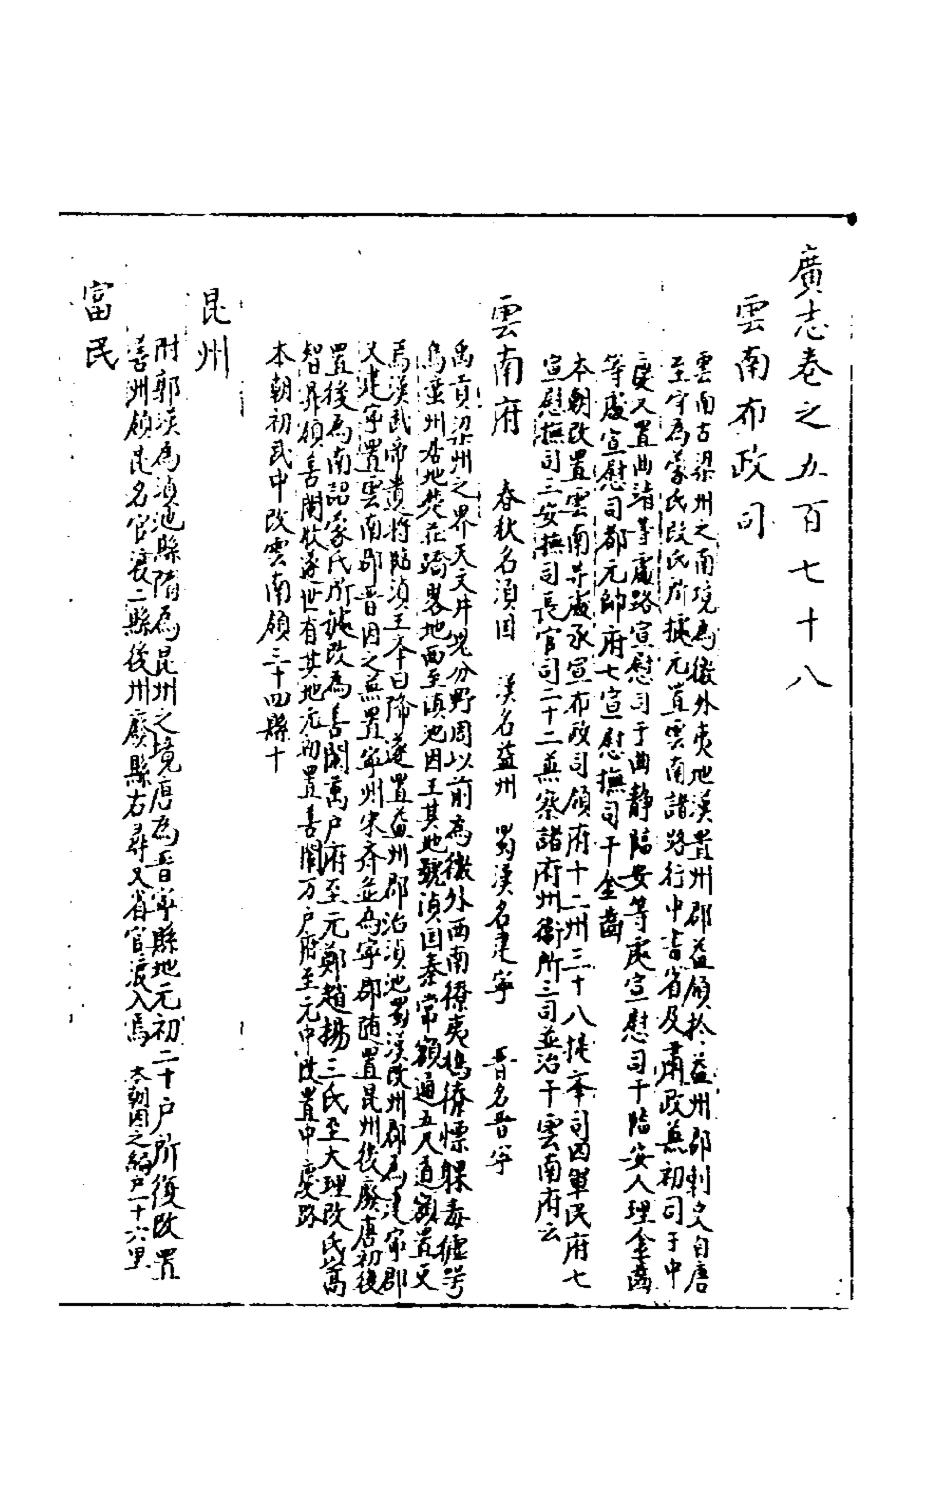 廣志卷之五百七十八
雲南布政司
雲南古梁州之南境為徼外夷地漢置州郡益領於益州郡刺史自唐
至宋為蒙氏段氏所據元置雲南諸路行中書省及肅政兼初司于中
慶又置曲靖等處路宣慰司于曲靜臨安等處宣慰司于臨安人理金齒
等處宣慰司都元帥府七宣慰撫司于金齒
本朝改置雲南等處承宣布政司領府十二州三十八提本司因軍民府七
宣慰撫司三安撫司長官司二十二並察諸府州衛所三司並治于雲南府云
雲南府 春秋名滇国 漢名益州 蜀漢名建寧 晉名晉寧
禹貢梁州之界天文井鬼分野周以前為徼外西南徼夷鳩獠慓躶毒爐号
為蛮州居地楚莊蹻畧地西至滇池因王其地號滇囯秦常頞通五尺道頞置吏
焉漢武帝遣将臨滇王本曰降遂置益州郡治滇池蜀漢改州郡為建寧郡
又建寧置雲南郡晋因之無置寧州宋齊並為寧郡随置昆州後廢唐初後
置後為南詔蒙氏所據改為善闡萬户府至元鄭趙楊三氏至大理改氏以高
智昇領善闡牧遂世有其地元初置善闡万户府至元中改置中慶路
本朝初武中改雲南領三十四縣十
昆州
附郭漢為滇池縣隋為昆州之境唐為晋寧縣地元初二十户所復改置
善州領昆名官渡二縣後州廢縣右尋又省官渡入焉 本朝因之編户一十六里
富民